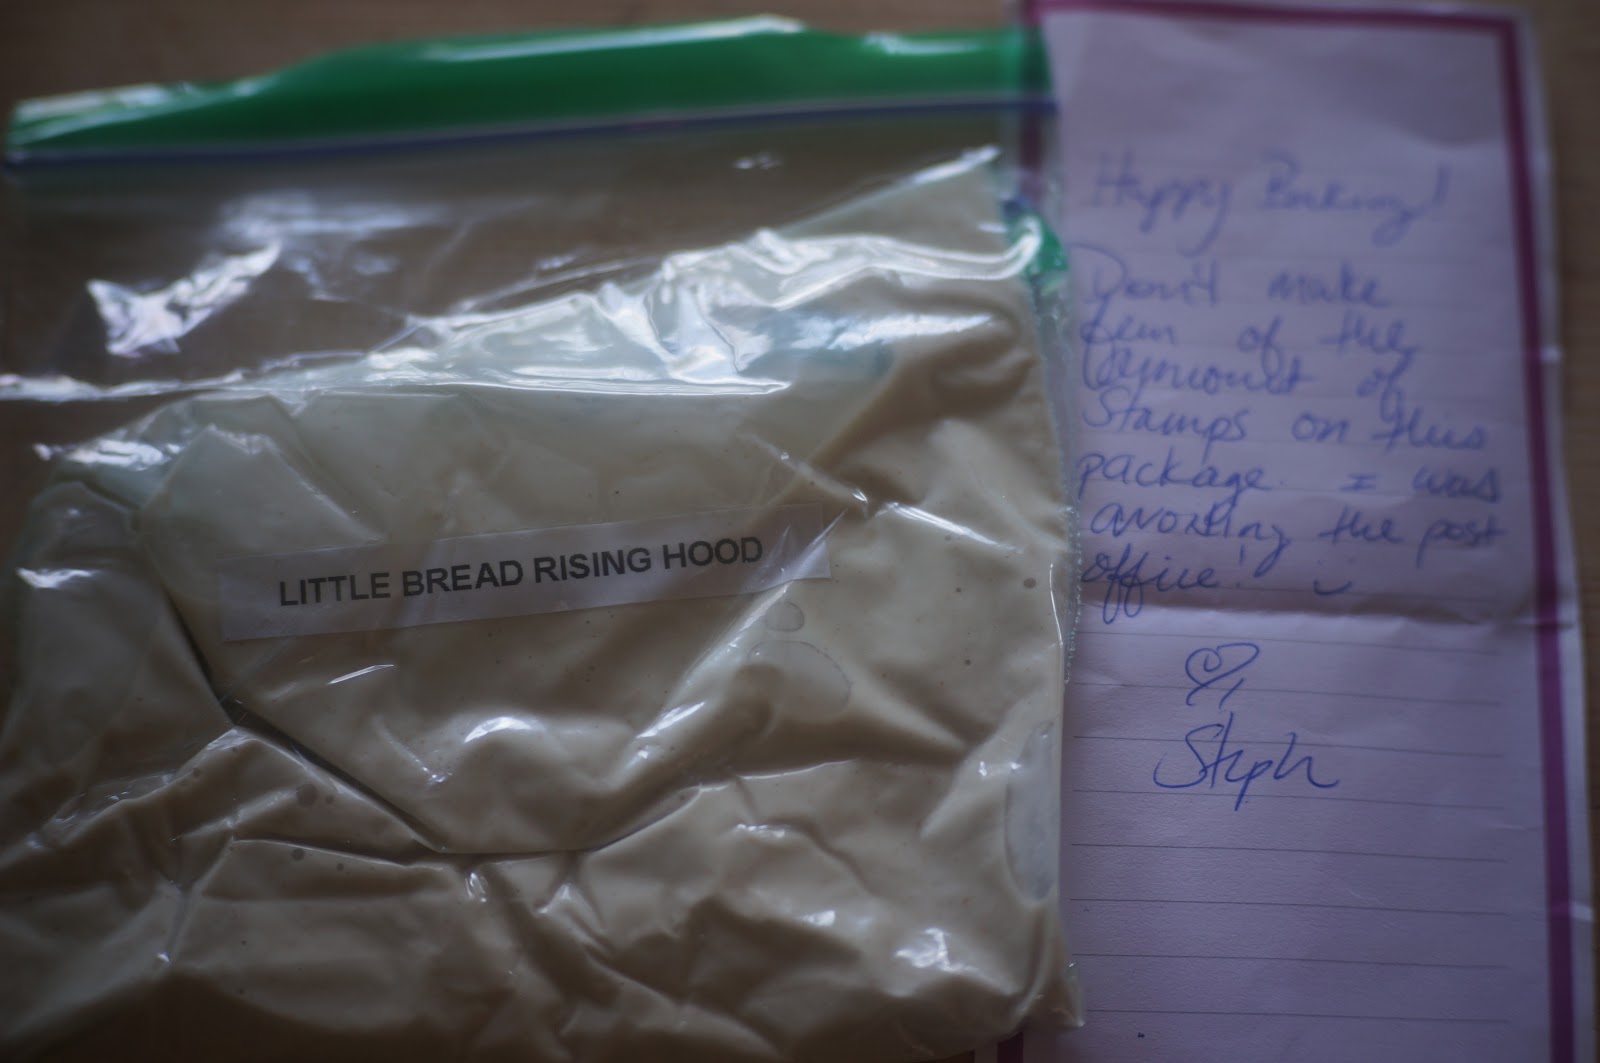 LITTLE BREAD RISING HOOD
Happy Baking!
Don't make
fun of the
amount of
stamps on this
package. I was
avoiding the post
office!
Steph